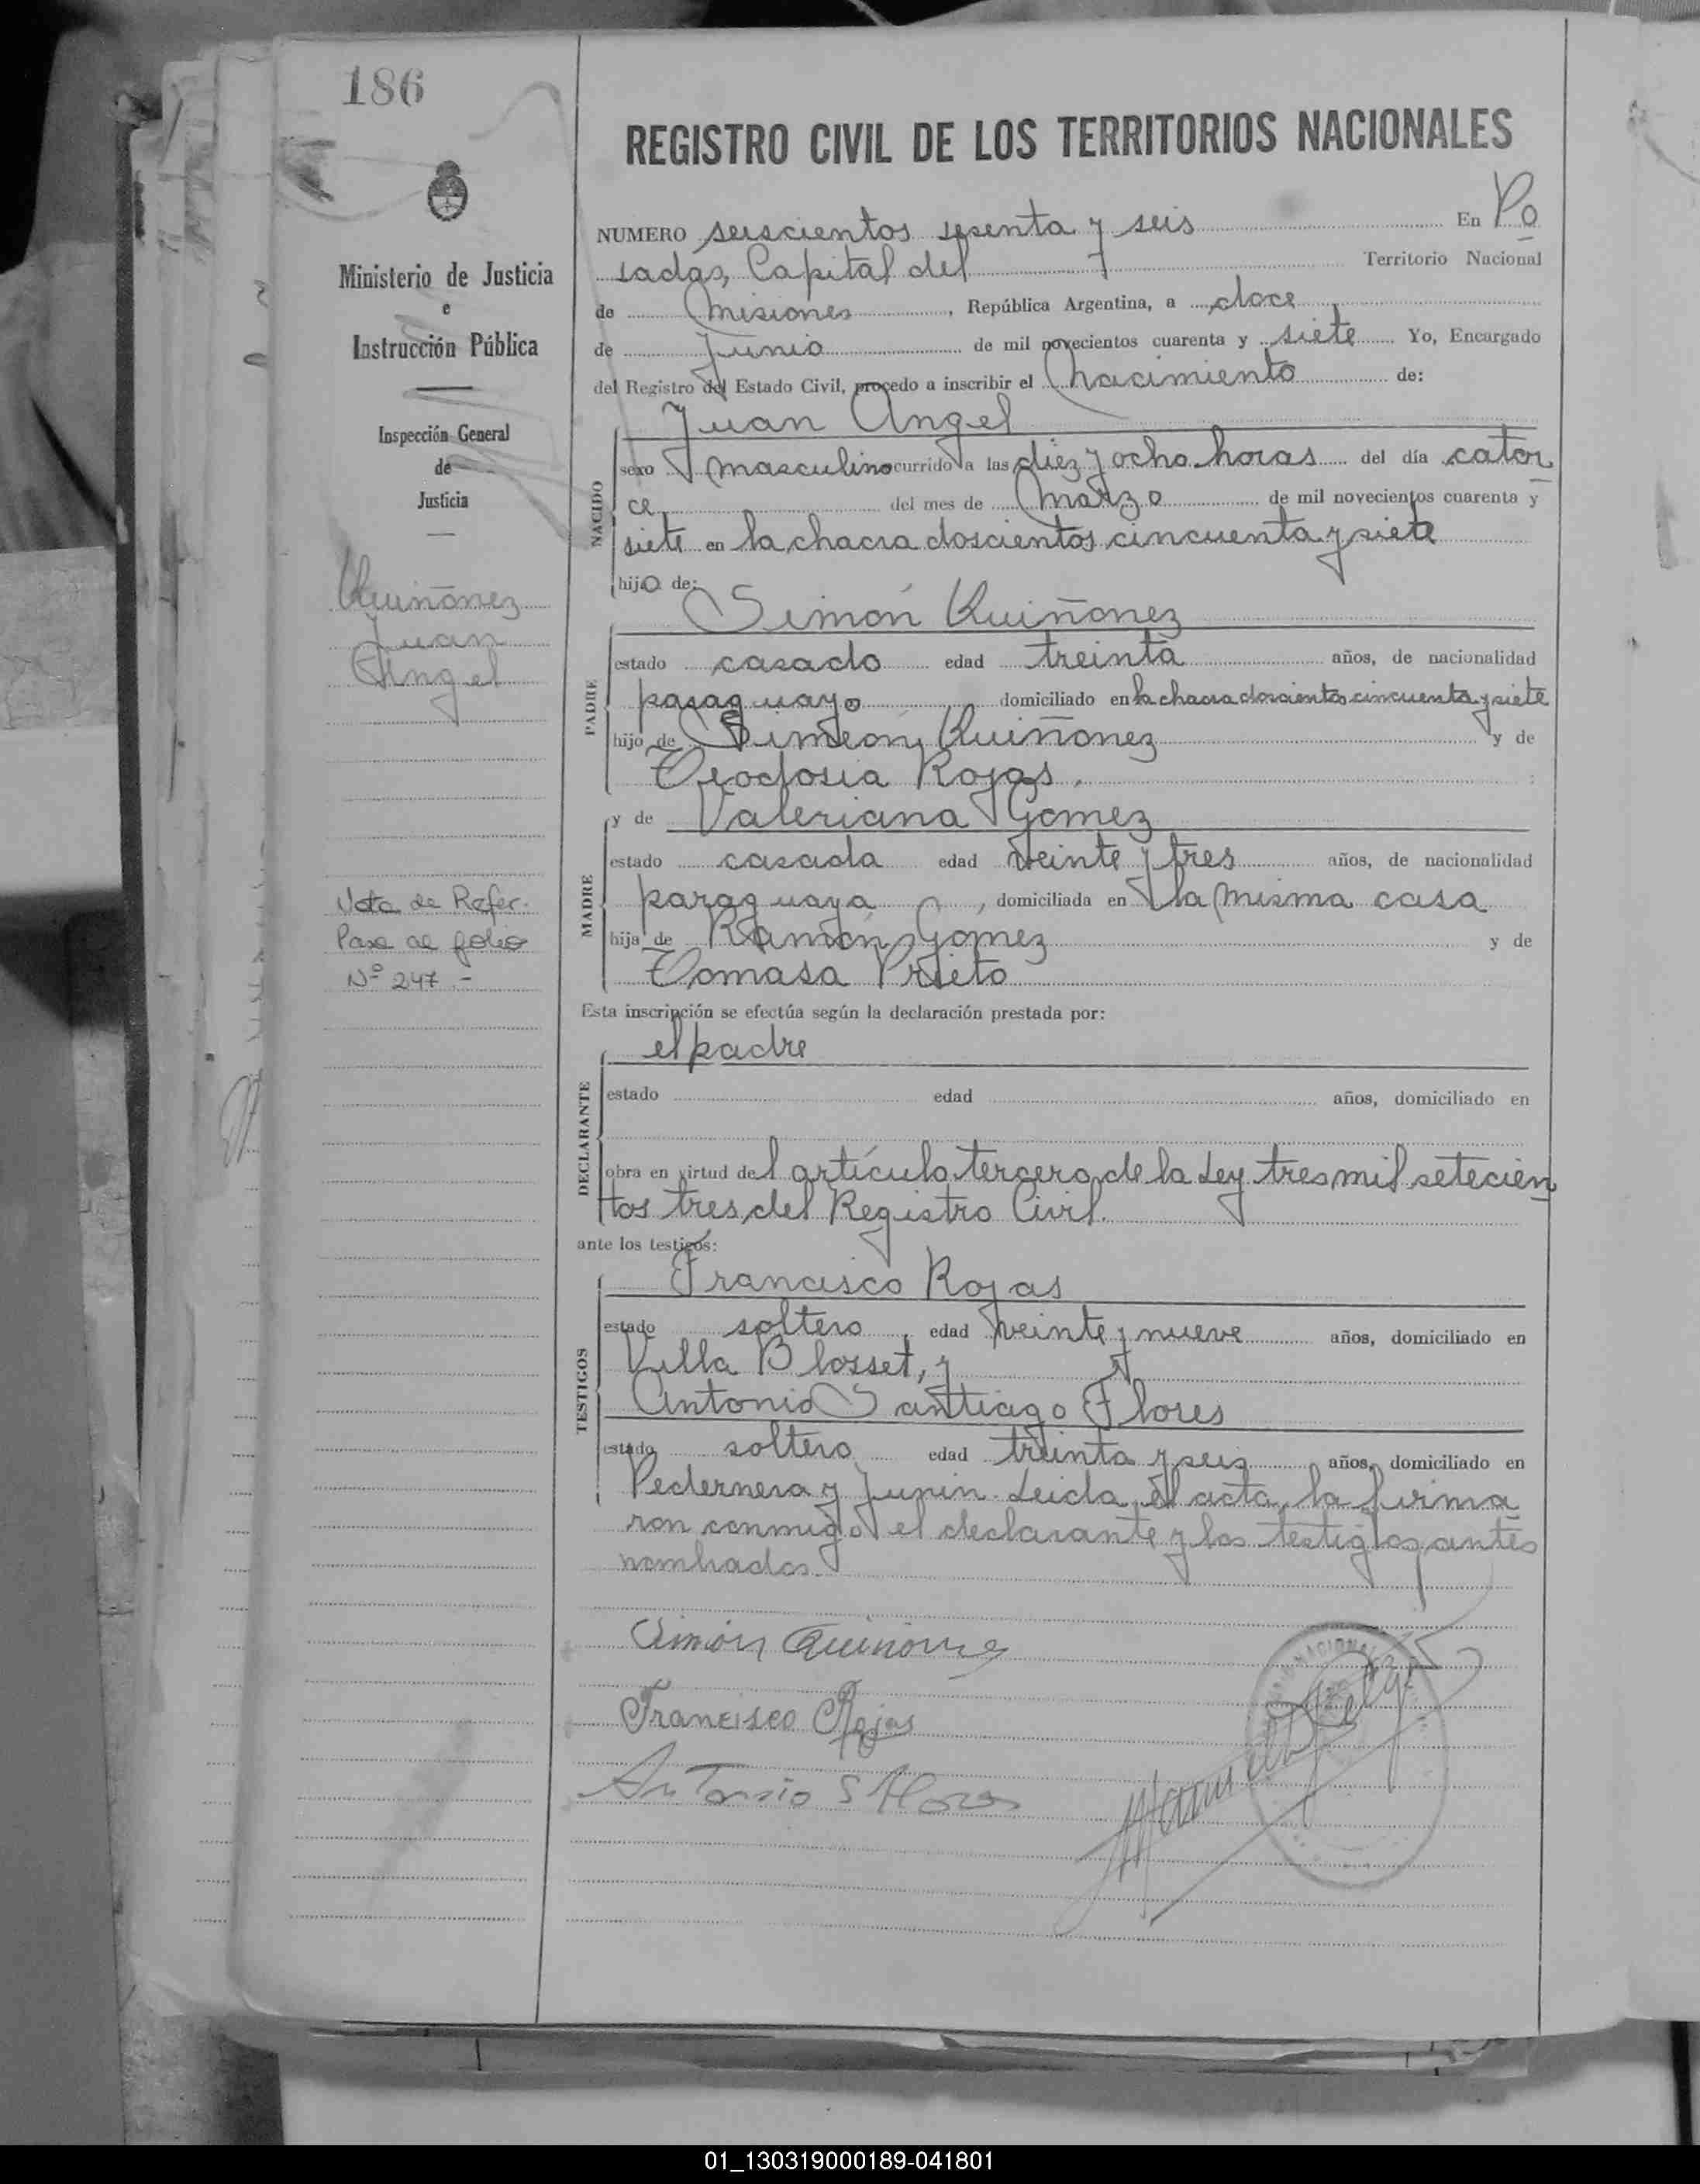 186
REGISTRO CIVIL DE LOS TERRITORIOS NACIONALES
Ministerio de Justicia
e
Instrucción Pública
Inspección General
de
Justicia
Quiñonez
Juan
Angel
Nota de Refer.
Pasa al folio
Nº 247.-
NUMERO seiscientos sesenta y seis En Po
sadas, Capital del Territorio Nacional
de Misiones, República Argentina, a doce
de Junio de mil novecientos cuarenta y siete Yo, Encargado
del Registro del Estado Civil, procedo a inscribir el Nacimiento de:
Juan Angel
NACIDO
sexo masculino ocurrido a las diez y ocho horas del día cator
ce del mes de Marzo de mil novecientos cuarenta y
siete en la chacra doscientos cincuenta y siete
hijo de:
Simón Quiñonez
PADRE
estado casado edad treinta años, de nacionalidad
paraguayo domiciliado en la chacra doscientos cincuenta y siete
hijo de Simeón Quiñonez y de
Teodosia Rojas.
y de Valeriana Gomez
MADRE
estado casada edad veinte y tres años, de nacionalidad
paraguaya, domiciliada en la misma casa
hija de Ramón Gomez y de
Tomasa Prieto
Esta inscripción se efectúa según la declaración prestada por:
el padre
DECLARANTE
estado edad años, domiciliado en
obra en virtud del artículo tercero de la Ley tres mil setecien
tos tres del Registro Civil.
ante los testigos:
Francisco Rojas
TESTIGOS
estado soltero, edad veinte y nueve años, domiciliado en
Villa Blosset, y
Antonio Santiago Flores
estado soltero edad treinta y seis años, domiciliado en
Pedernera y Junin. Leida el acta, la firma
ron conmigo el declarante y los testigos antes
nombrados.
Simón Quiñonez
Francisco Rojas
Antonio S Flores
NACIONAL
01_130319000189-041801